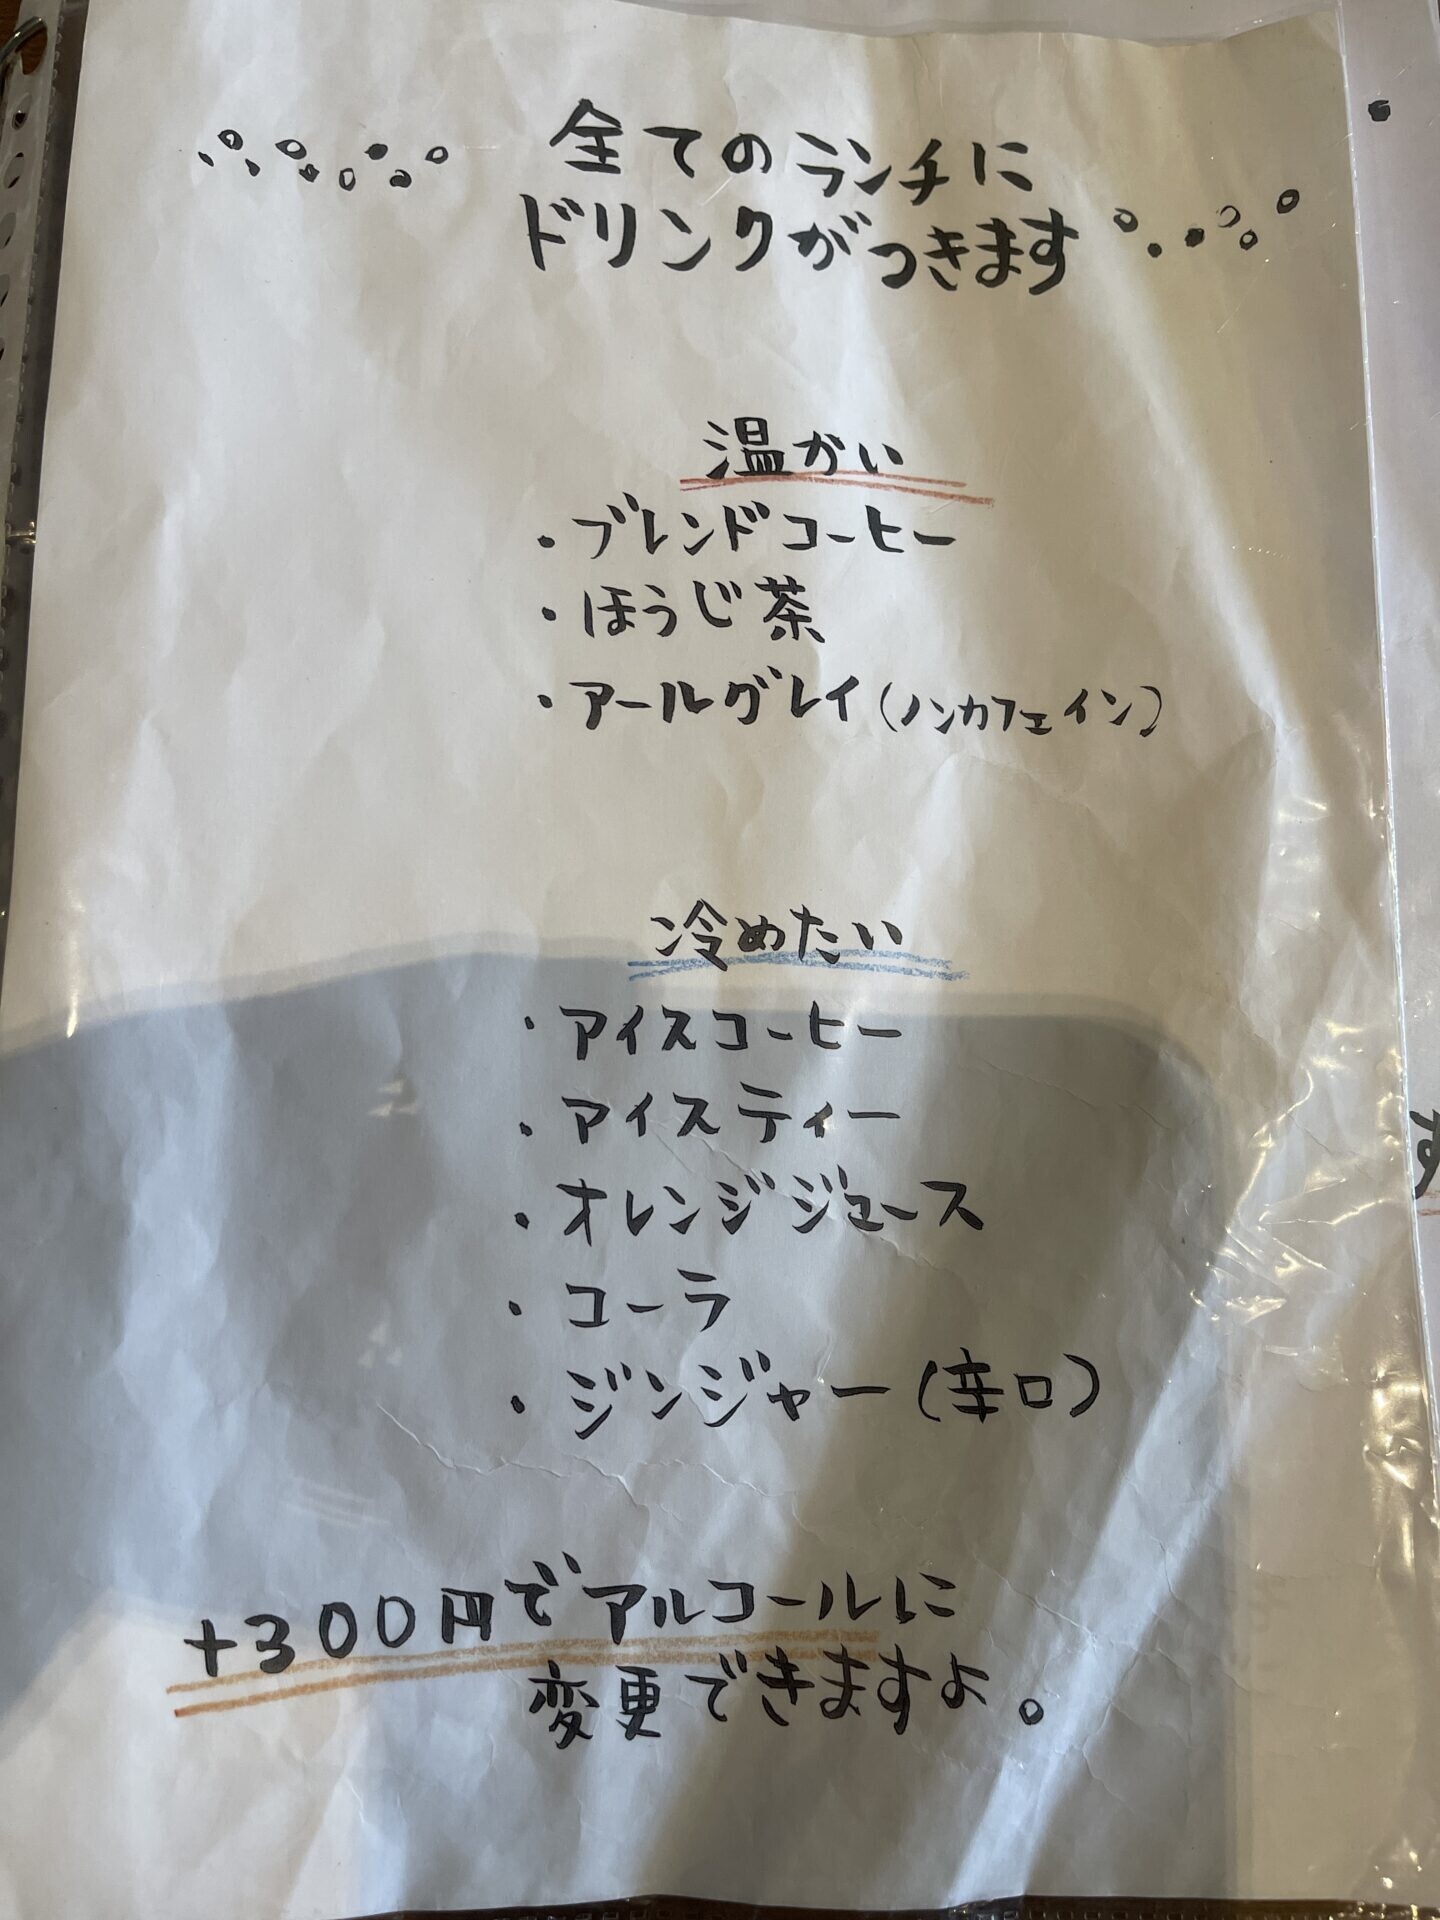 全てのランチに
ドリンクがつきます
温かい
・ブレンドコーヒー
・ほうじ茶
・アールグレイ(ノンカフェイン)
冷めたい
・アイスコーヒー
・アイスティー
・オレンジジュース
・コーラ
・ジンジャー(辛口)
+300円でアルコールに
変更できますよ。
す